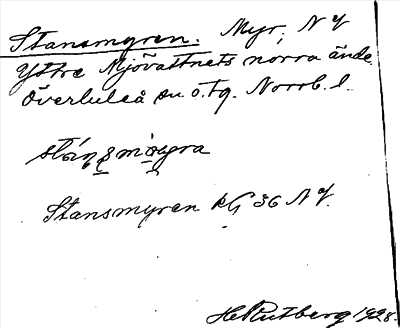 Stansmyren. Myr, N of
Yttre Mjövattnets norra ände.
Överluleå sn o. tg. Norrb. l.
Stansmyren kG 36 N of.
H. Rutberg 1928.